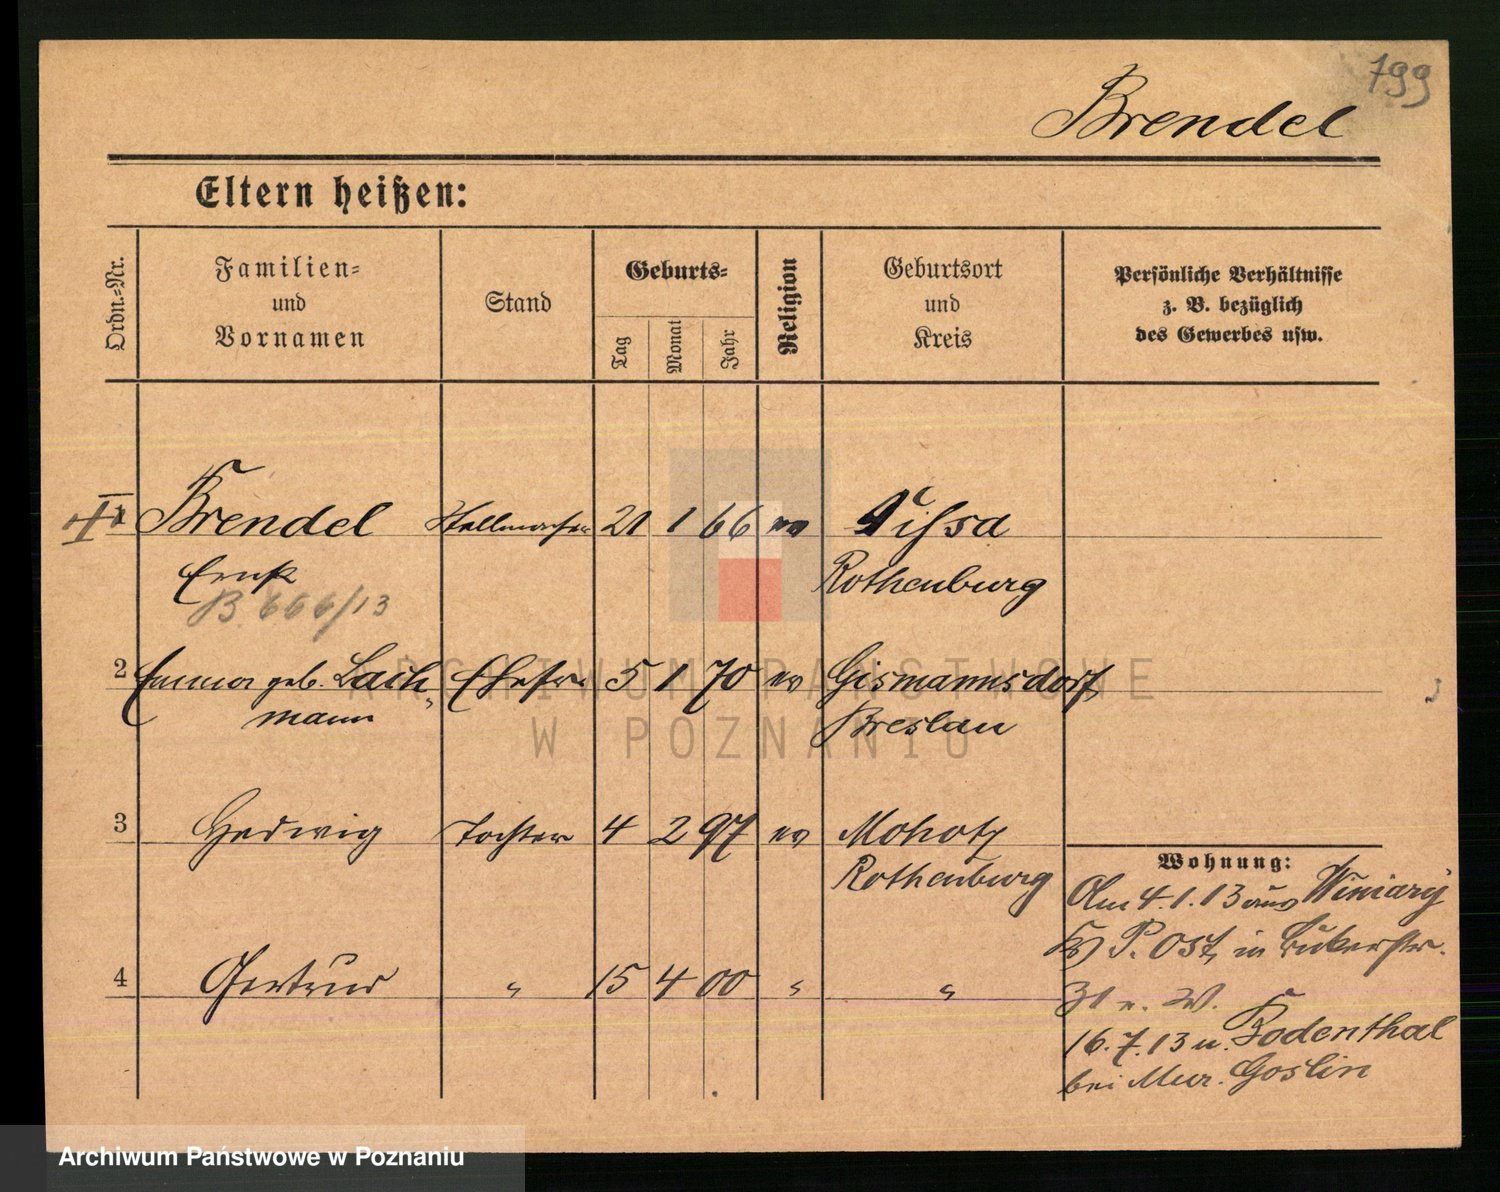 799
Brendel
Eltern heißen:
Ordn.-Nr.
Familien-
und
Vornamen
Stand
Geburts-
Tag
Monat
Jahr
Religion
Geburtsort
und
Kreis
Persönliche Verhältnisse
z. B. bezüglich
des Gewerbes usw.
1 Brendel Stellmacher 21 1 66 ev
Ernst Rothenburg
B. 666/13
2 Emma geb. Lach- Ehefr. 5 1 70 ev Gismannsdorf
mann Breslau
3 Hedwig Tochter 4 2 97 ev Moholz
Rothenburg
4 Gertrud " 15 4 00 " "
Wohnung:
Am 4.1.13 aus Winiary
P. Ost, in
31 n. W.
16.7.13 n. Bodenthal
bei Mur. Goslin
ARCHIWUM PAŃSTWOWE
W POZNANIU
Archiwum Państwowe w Poznaniu